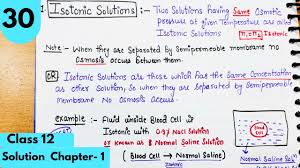 30
Isotonic Solutions :- Two Solutions having Same Osmotic
pressure at given Temperature are called
Isotonic Solutions. π₁=π₂ Isotonic
Note - When they are Separated by Semipermeable membrane no
Osmosis occurs between them.
OR Isotonic Solutions are those which has the Same Concentration
as other Solution, So when they are Separated by Semipermeable
Membrane No Osmosis occurs.
example:- Fluid inside Blood Cell is
Isotonic with 0.9% Nacl Solution
or known as Normal Saline Solution
(Blood Cell → Normal Saline)
Class 12
Solution Chapter-1